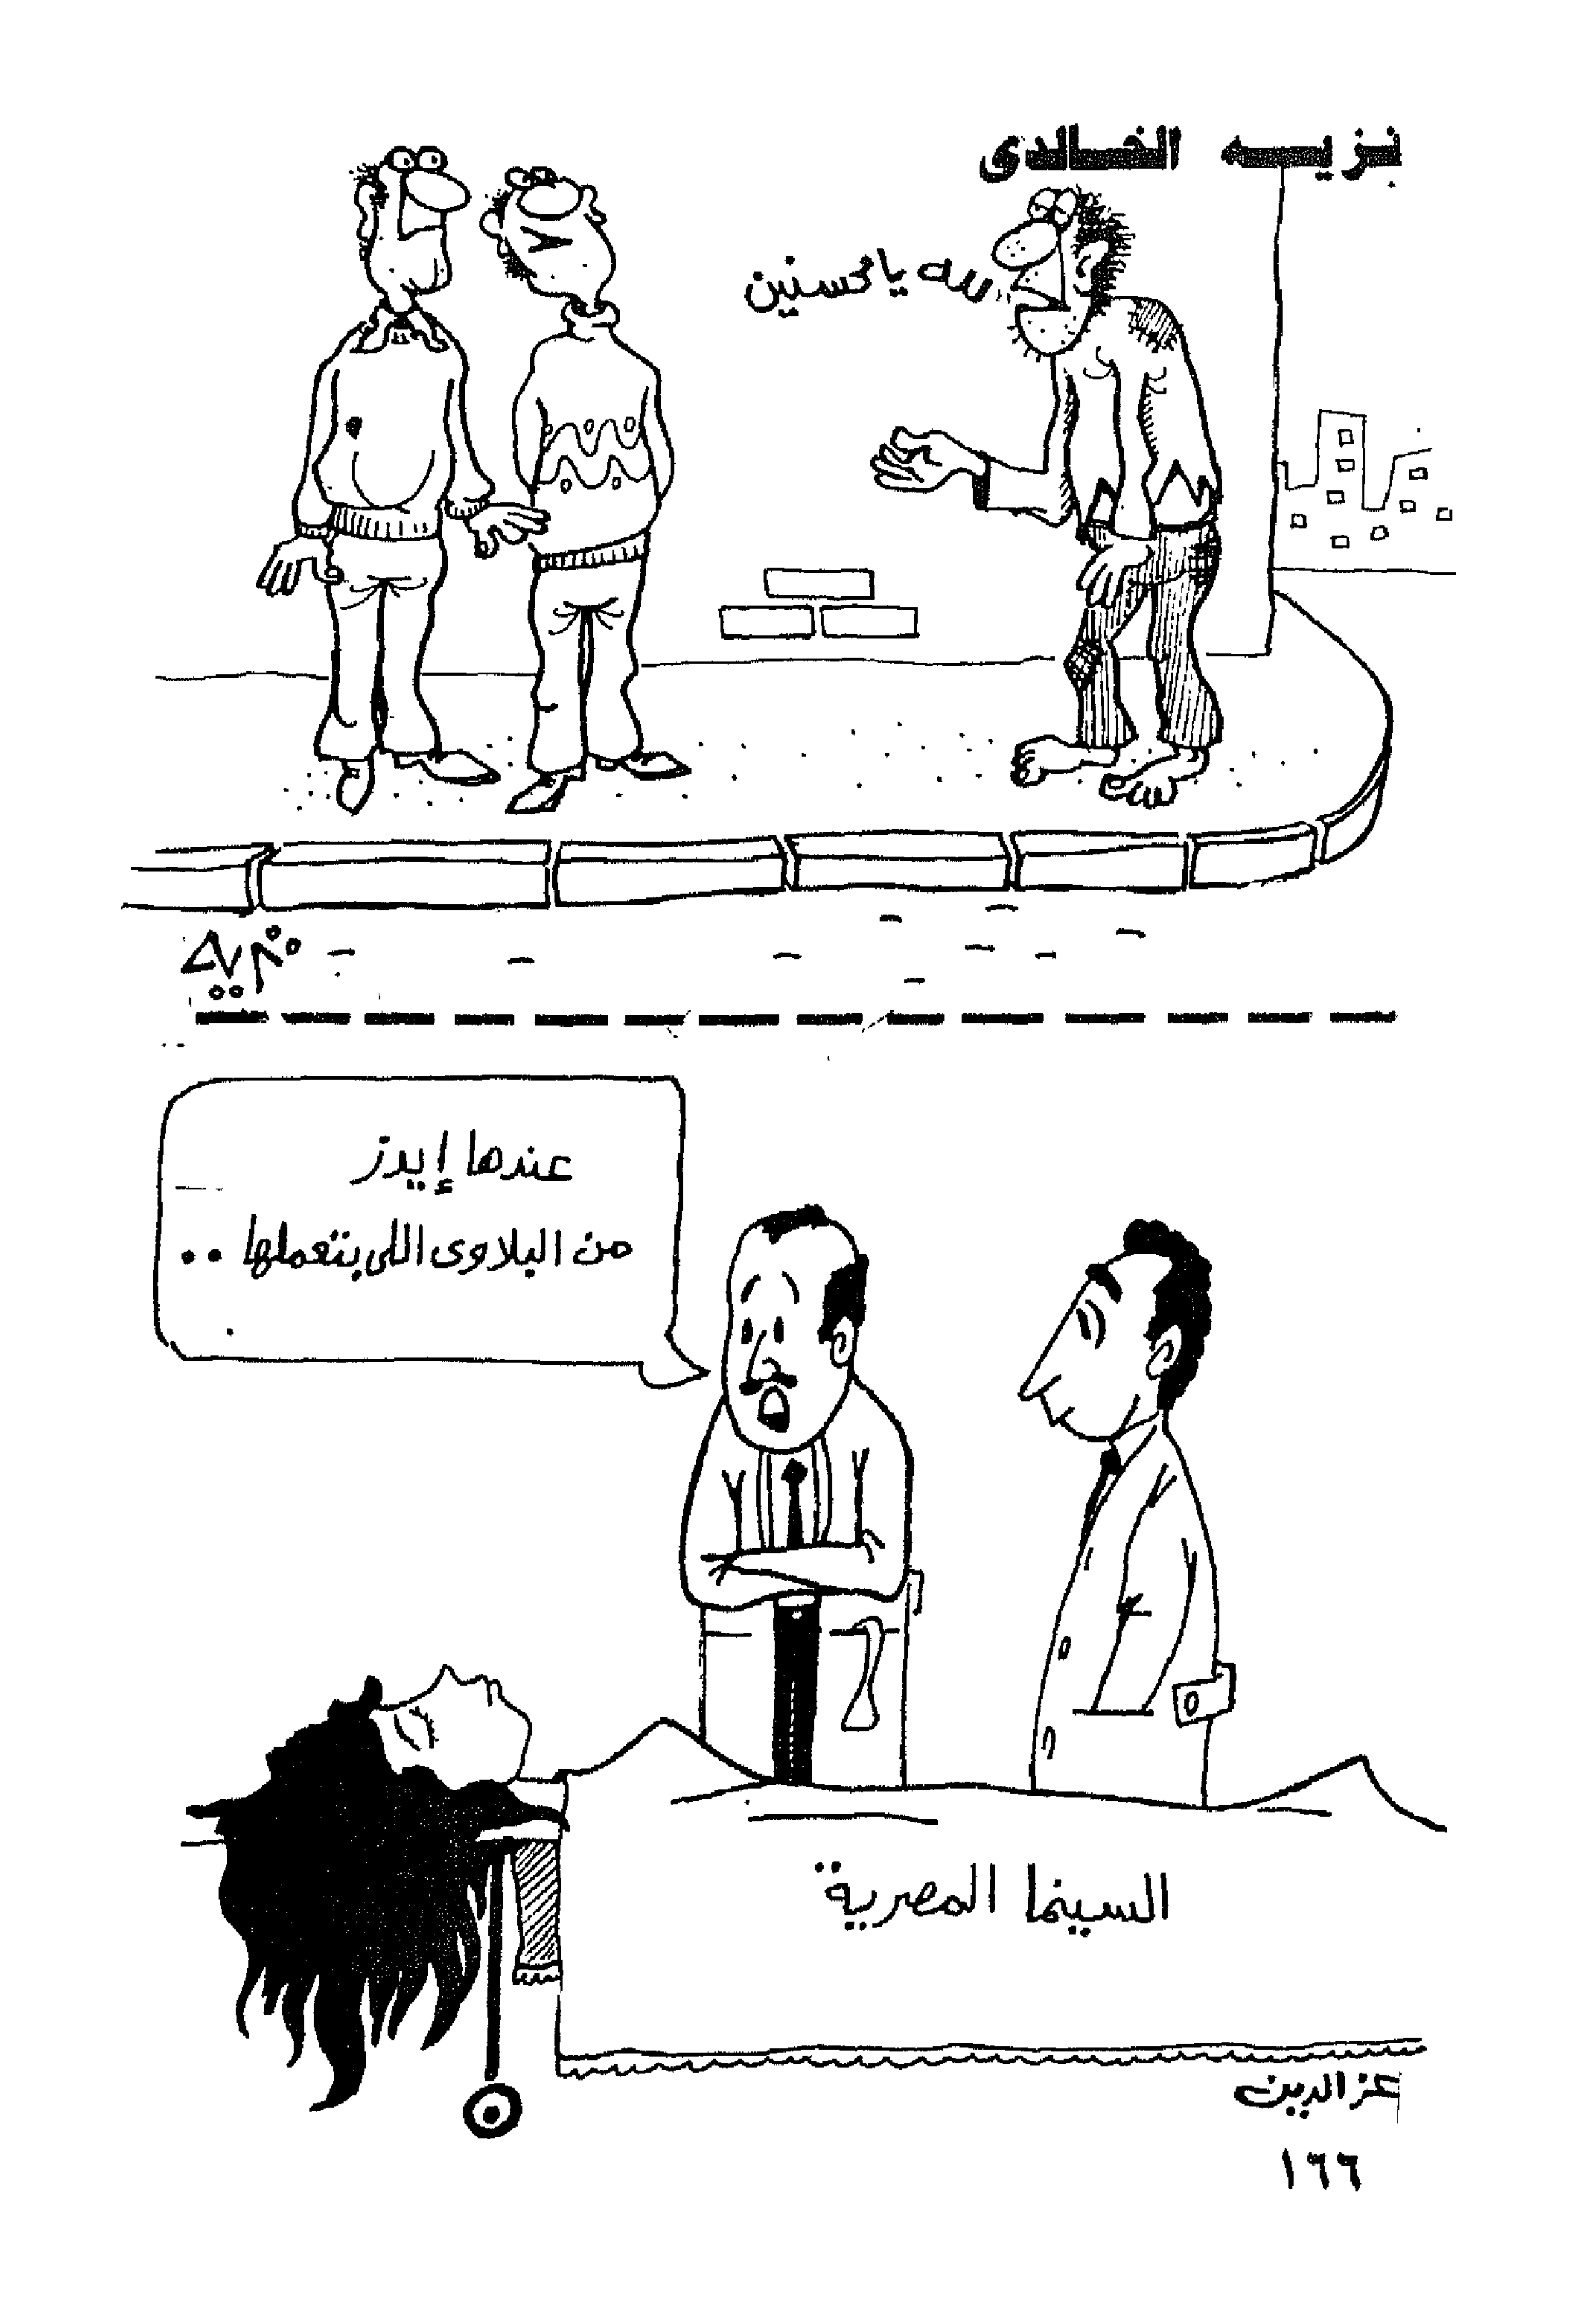 نزيه الخالدى
لله يا محسنين
نزيه
عندها إيدز
من البلاوى اللى بتعملها ..
السينما المصرية
عز الدين
١٦٦